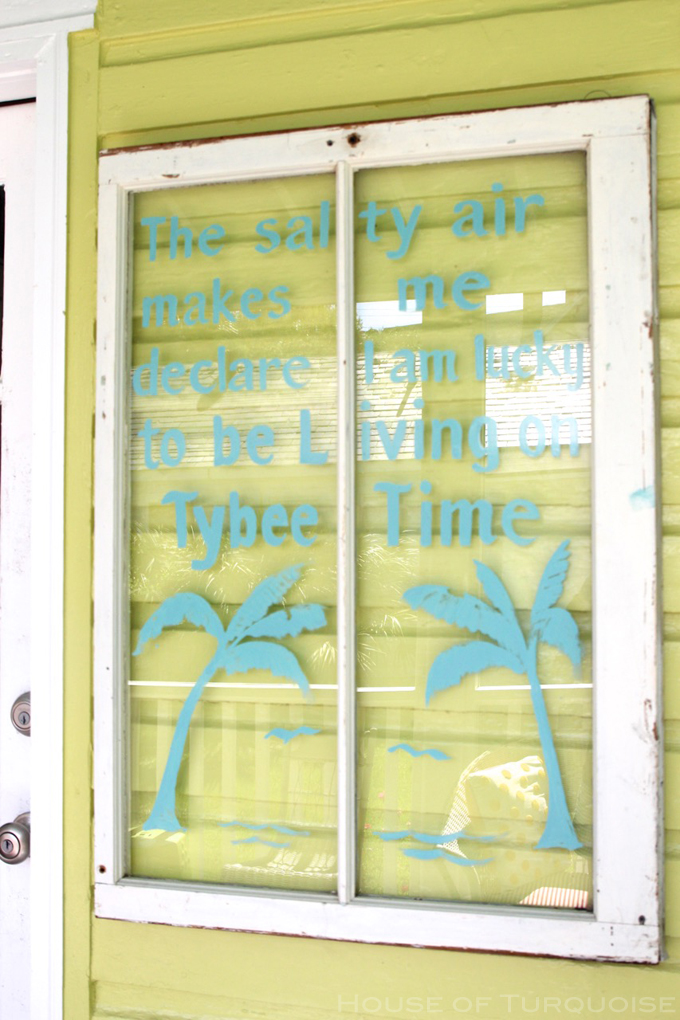 The salty air
makes me
declare I am lucky
to be Living on
Tybee Time
HOUSE OF TURQUOISE